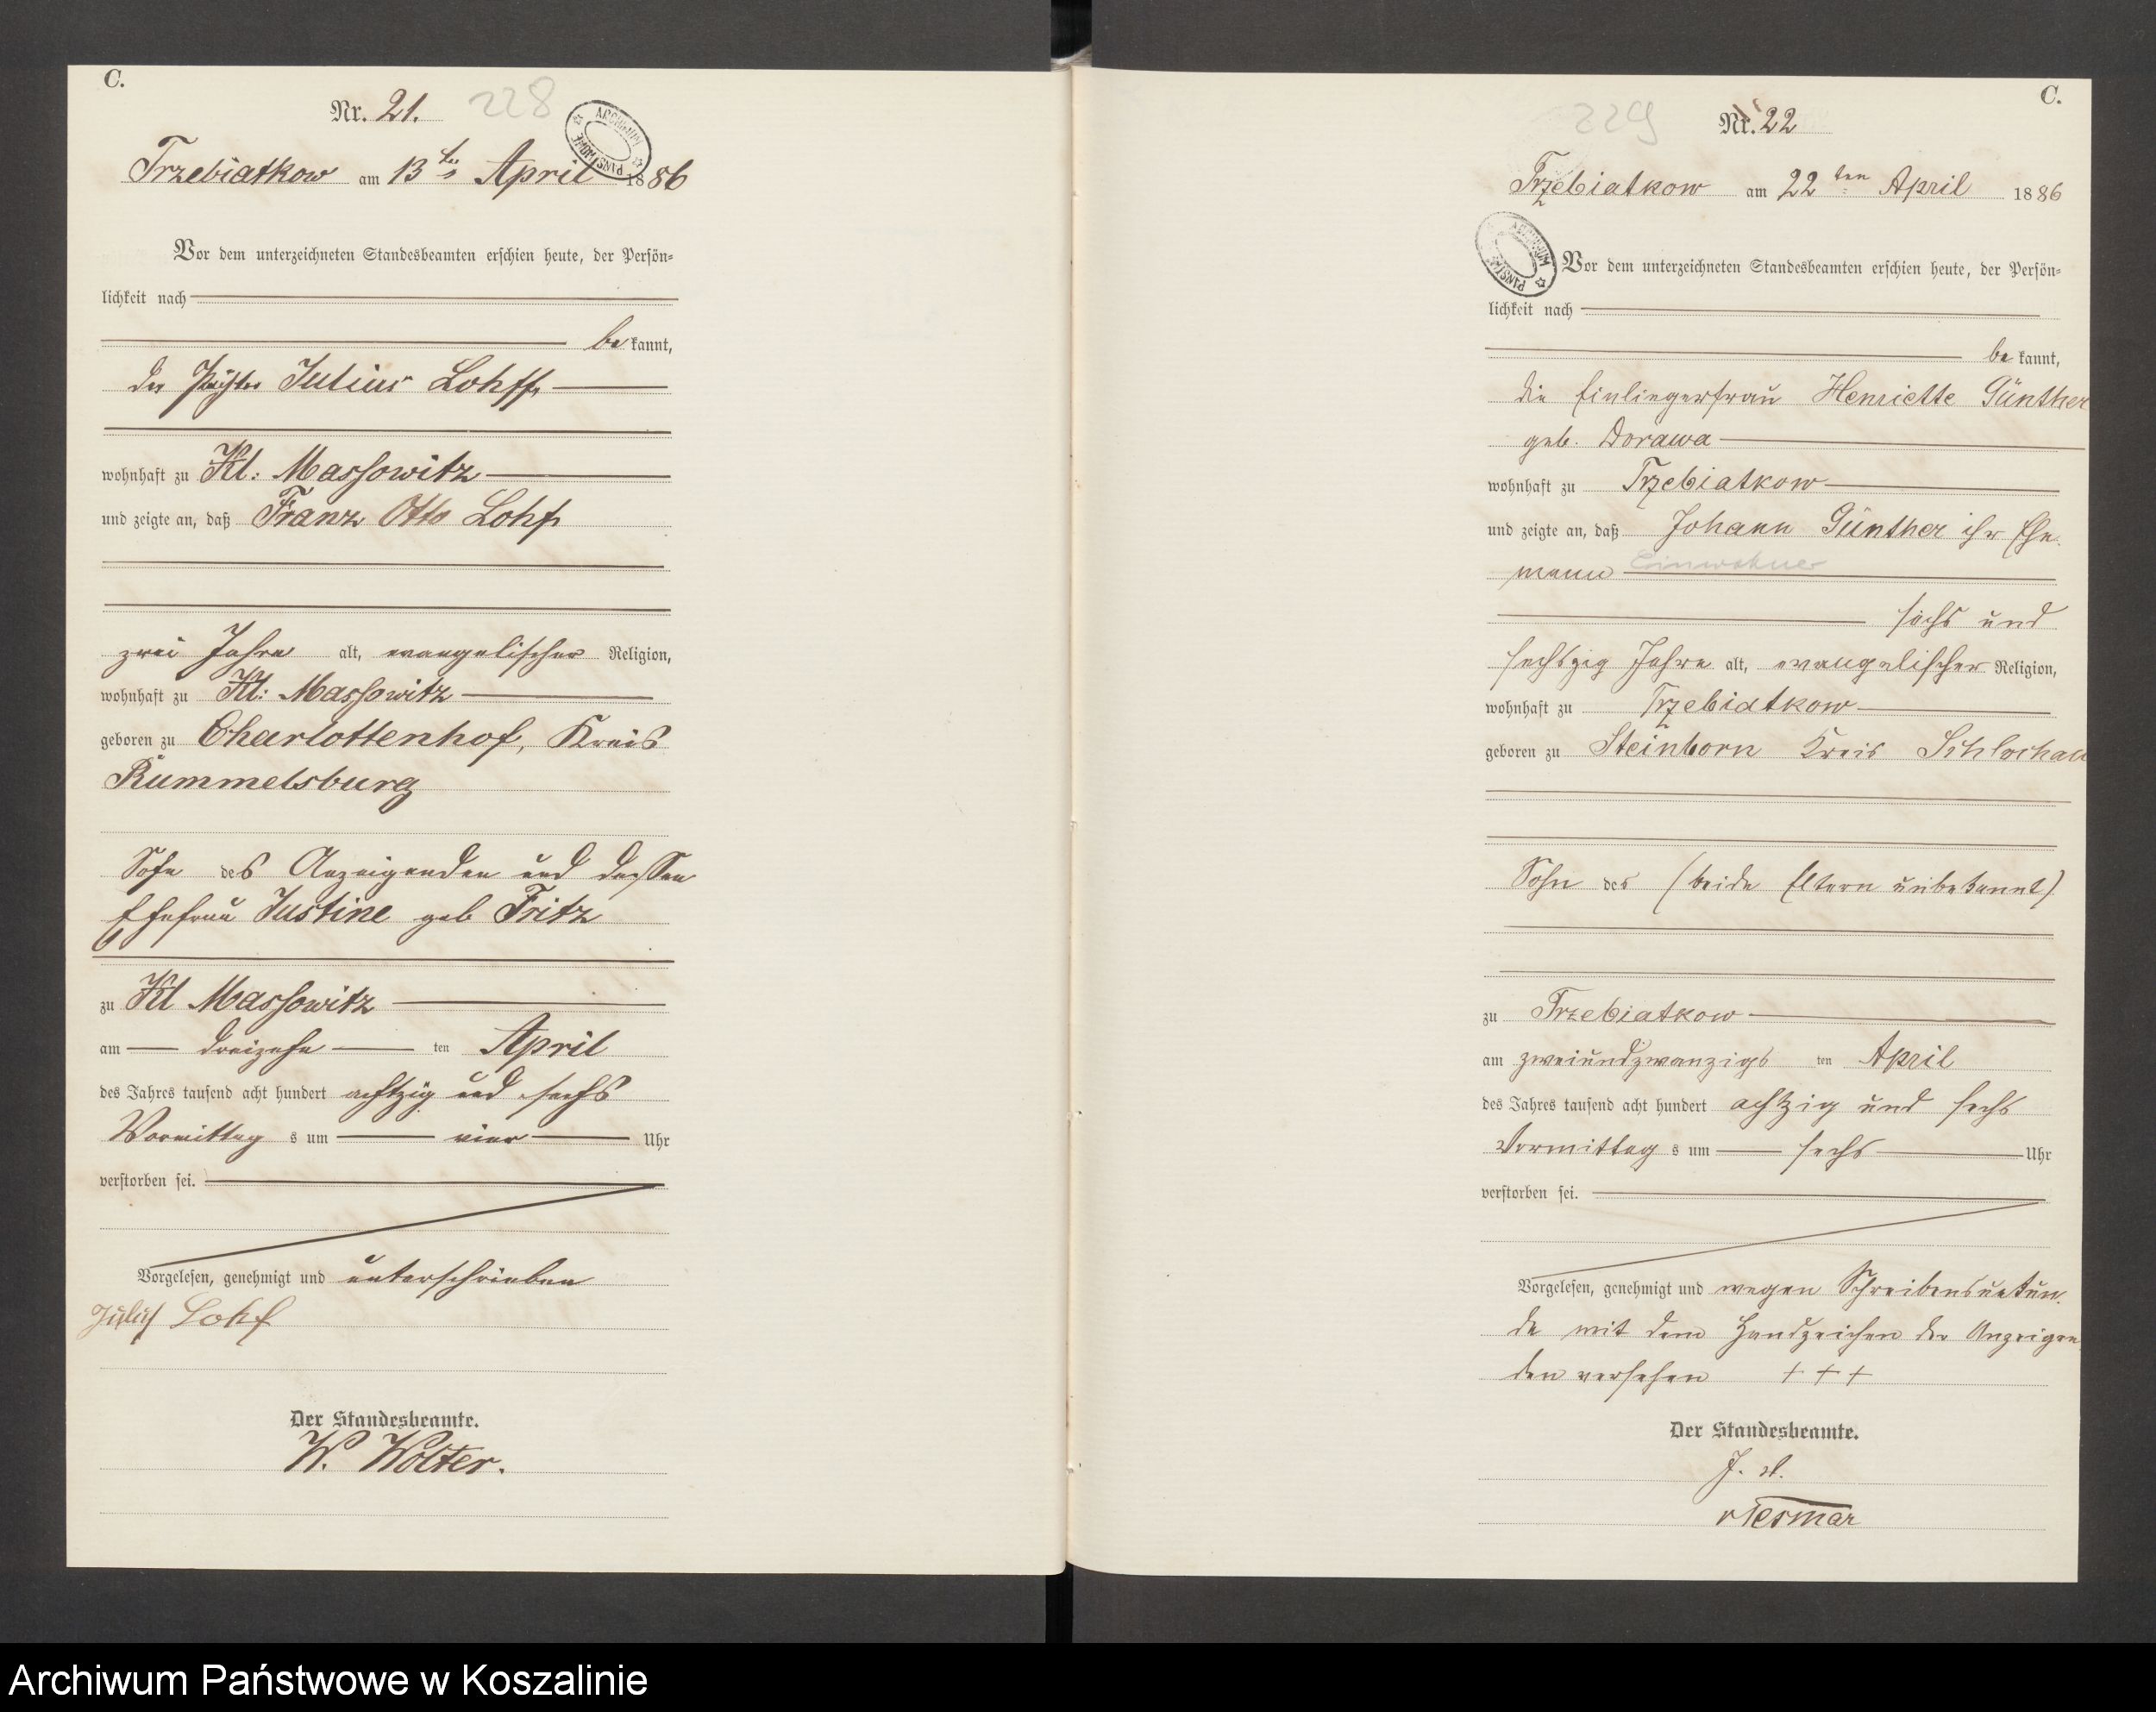 C.
Nr. 21. 228
ARCHIWUM PAŃSTWOWE
Trzebiatkow am 13ten April 1886
Vor dem unterzeichneten Standesbeamten erschien heute, der Persön-
lichkeit nach
be kannt,
der Pächter Julius Lohff,
wohnhaft zu Kl: Massowitz
und zeigte an, daß Franz Otto Lohff
zwei Jahre alt, evangelischer Religion,
wohnhaft zu Kl: Massowitz
geboren zu Charlottenhof, Kreis
Rummelsburg
Sohn des Anzeigenden und dessen
Ehefrau Justine geb Fritz
zu Kl Massowitz
am dreizehn ten April
des Jahres tausend acht hundert achtzig und sechs
Vormittag s um vier Uhr
verstorben sei.
Vorgelesen, genehmigt und unterschrieben
Lohf
Der Standesbeamte.
W. Wolter.
C.
229 Nr. 22
Trzebiatkow am 22ten April 1886
ARCHIWUM PAŃSTWOWE
Vor dem unterzeichneten Standesbeamten erschien heute, der Persön-
lichkeit nach
be kannt,
die Einliegerfrau Henriette Günther
geb. Dorawa
wohnhaft zu Trzebiatkow
und zeigte an, daß Johann Günther ihr Ehe-
mann Einwohner
sechs und
sechszig Jahre alt, evangelischer Religion,
wohnhaft zu Trzebiatkow
geboren zu Steinborn Kreis Schlochau
Sohn des (beide Eltern unbekannt)
zu Trzebiatkow
am zweiundzwanzigs ten April
des Jahres tausend acht hundert achtzig und sechs
Vormittag s um sechs Uhr
verstorben sei.
Vorgelesen, genehmigt und wegen Schreibensunkun-
de mit dem Handzeichen der Anzeigen
den versehen + + +
Der Standesbeamte.
J. V.
vTesmar
Archiwum Państwowe w Koszalinie